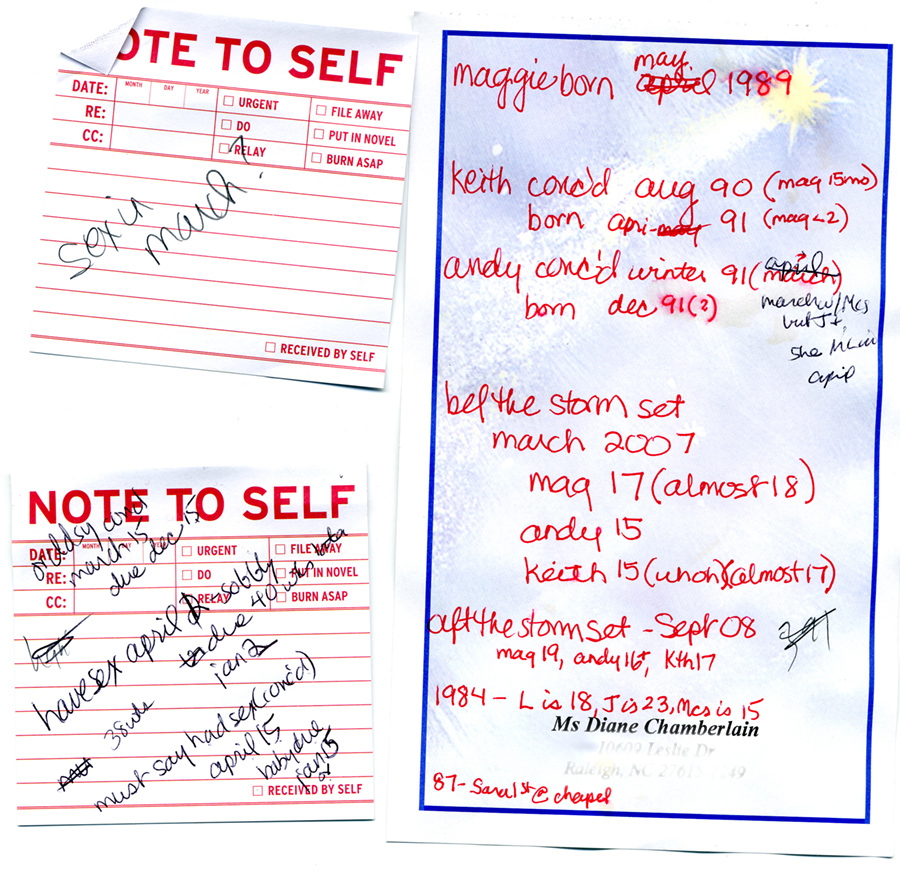 OTE TO SELF
DATE: MONTH DAY YEAR
RE:
CC:
☐ URGENT
☐ DO
☐ RELAY
☐ FILE AWAY
☐ PUT IN NOVEL
☐ BURN ASAP
sex in
march?
☐ RECEIVED BY SELF
NOTE TO SELF
DATE: MONTH
RE:
CC:
☐ URGENT
☐ DO
☐ RELAY
☐ FILE AWAY
☐ PUT IN NOVEL
☐ BURN ASAP
march 15
due dec 15
have sex april
due 40 wks
jan 2
38 wks
must say had sex (conc'd)
april 15
baby due
jan 5
☐ RECEIVED BY SELF
may
maggie born april 1989
keith conc'd aug 90 (mag 15mo)
born apri- may 91 (mag <2)
april
andy conc'd winter 91 (march)
born dec 91 (?)
march w/Mcs
but J+
she
april
bef the storm set
march 2007
mag 17 (almost 18)
andy 15
keith 15 (uhoh) (almost 17)
aft the storm set - Sept 08
mag 19, andy 16+, Kth 17
1984 - L is 18, J is 23, Mcs is 15
Ms Diane Chamberlain
10609 Leslie Dr
Raleigh, NC
87- Sara 1st @ chapel